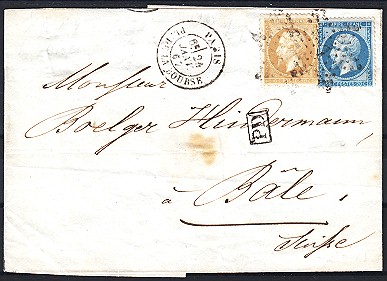 PARIS
PL. DE LA BOURSE
24
6
EMPIRE FRANC
POSTES
Monsieur
Boelger Hindermann,
PD
à Bâle,
Suisse